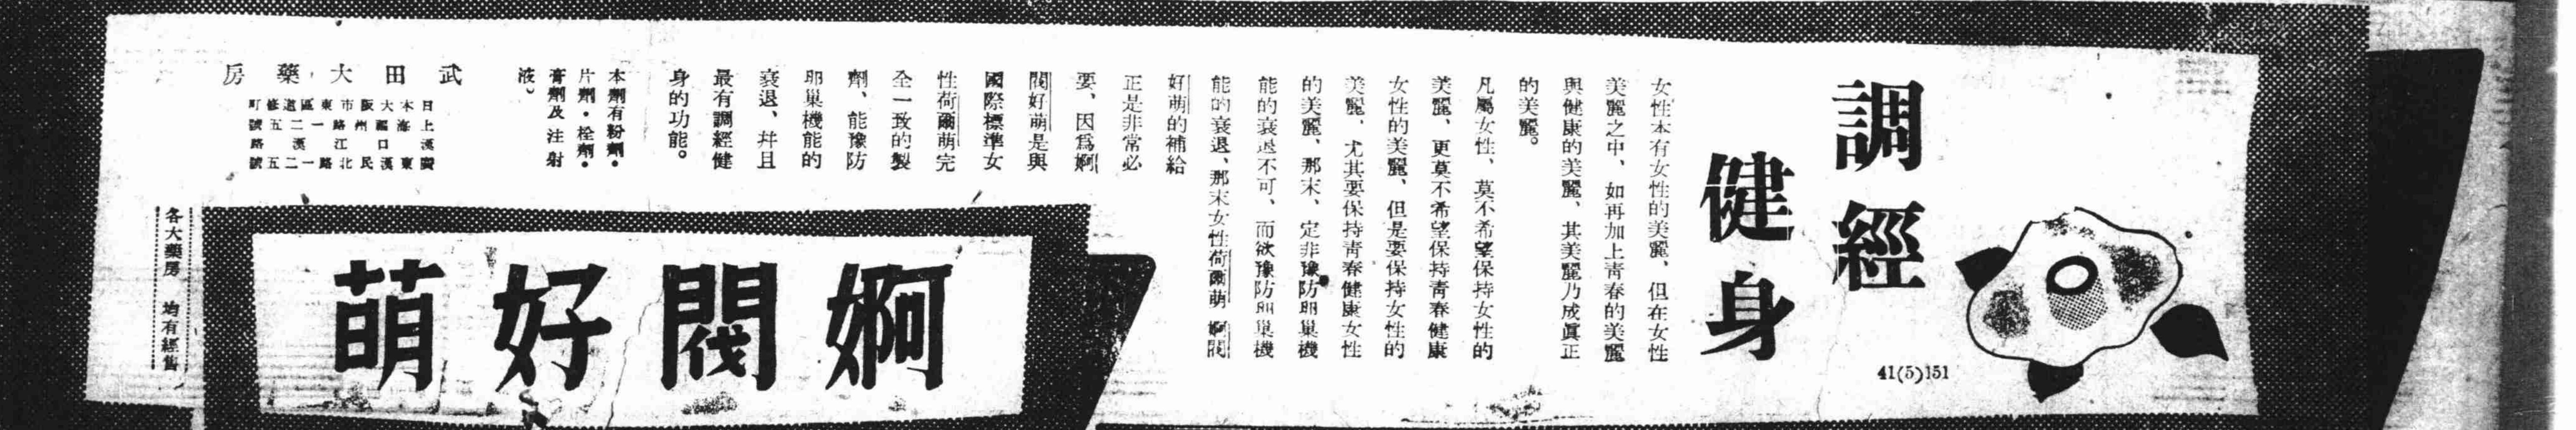 調經
健身
41(5)151
女性本有女性的美麗、但在女性
美麗之中、如再加上青春的美麗
與健康的美麗、其美麗乃成眞正
的美麗。
凡屬女性、莫不希望保持女性的
美麗、更莫不希望保持青春健康
女性的美麗、但是要保持女性的
美麗、尤其要保持青春健康女性
的美麗、那末、定非豫防卵巢機
能的衰退不可、而欲豫防卵巢機
能的衰退、那末女性荷爾萌 婀閥
好萌的補給
正是非常必
要、因爲婀
閥好萌是與
國際標準女
性荷爾萌完
全一致的製
劑、能豫防
卵巢機能的
衰退、幷且
最有調經健
身的功能。
本劑有粉劑・
片劑・栓劑・
膏劑及注射
液。
婀閥好萌
武田大藥房
日本大阪市東區道修町
上海福州路一二五號
漢口江漢路
廣東漢民北路一二五號
各大藥房 均有經售